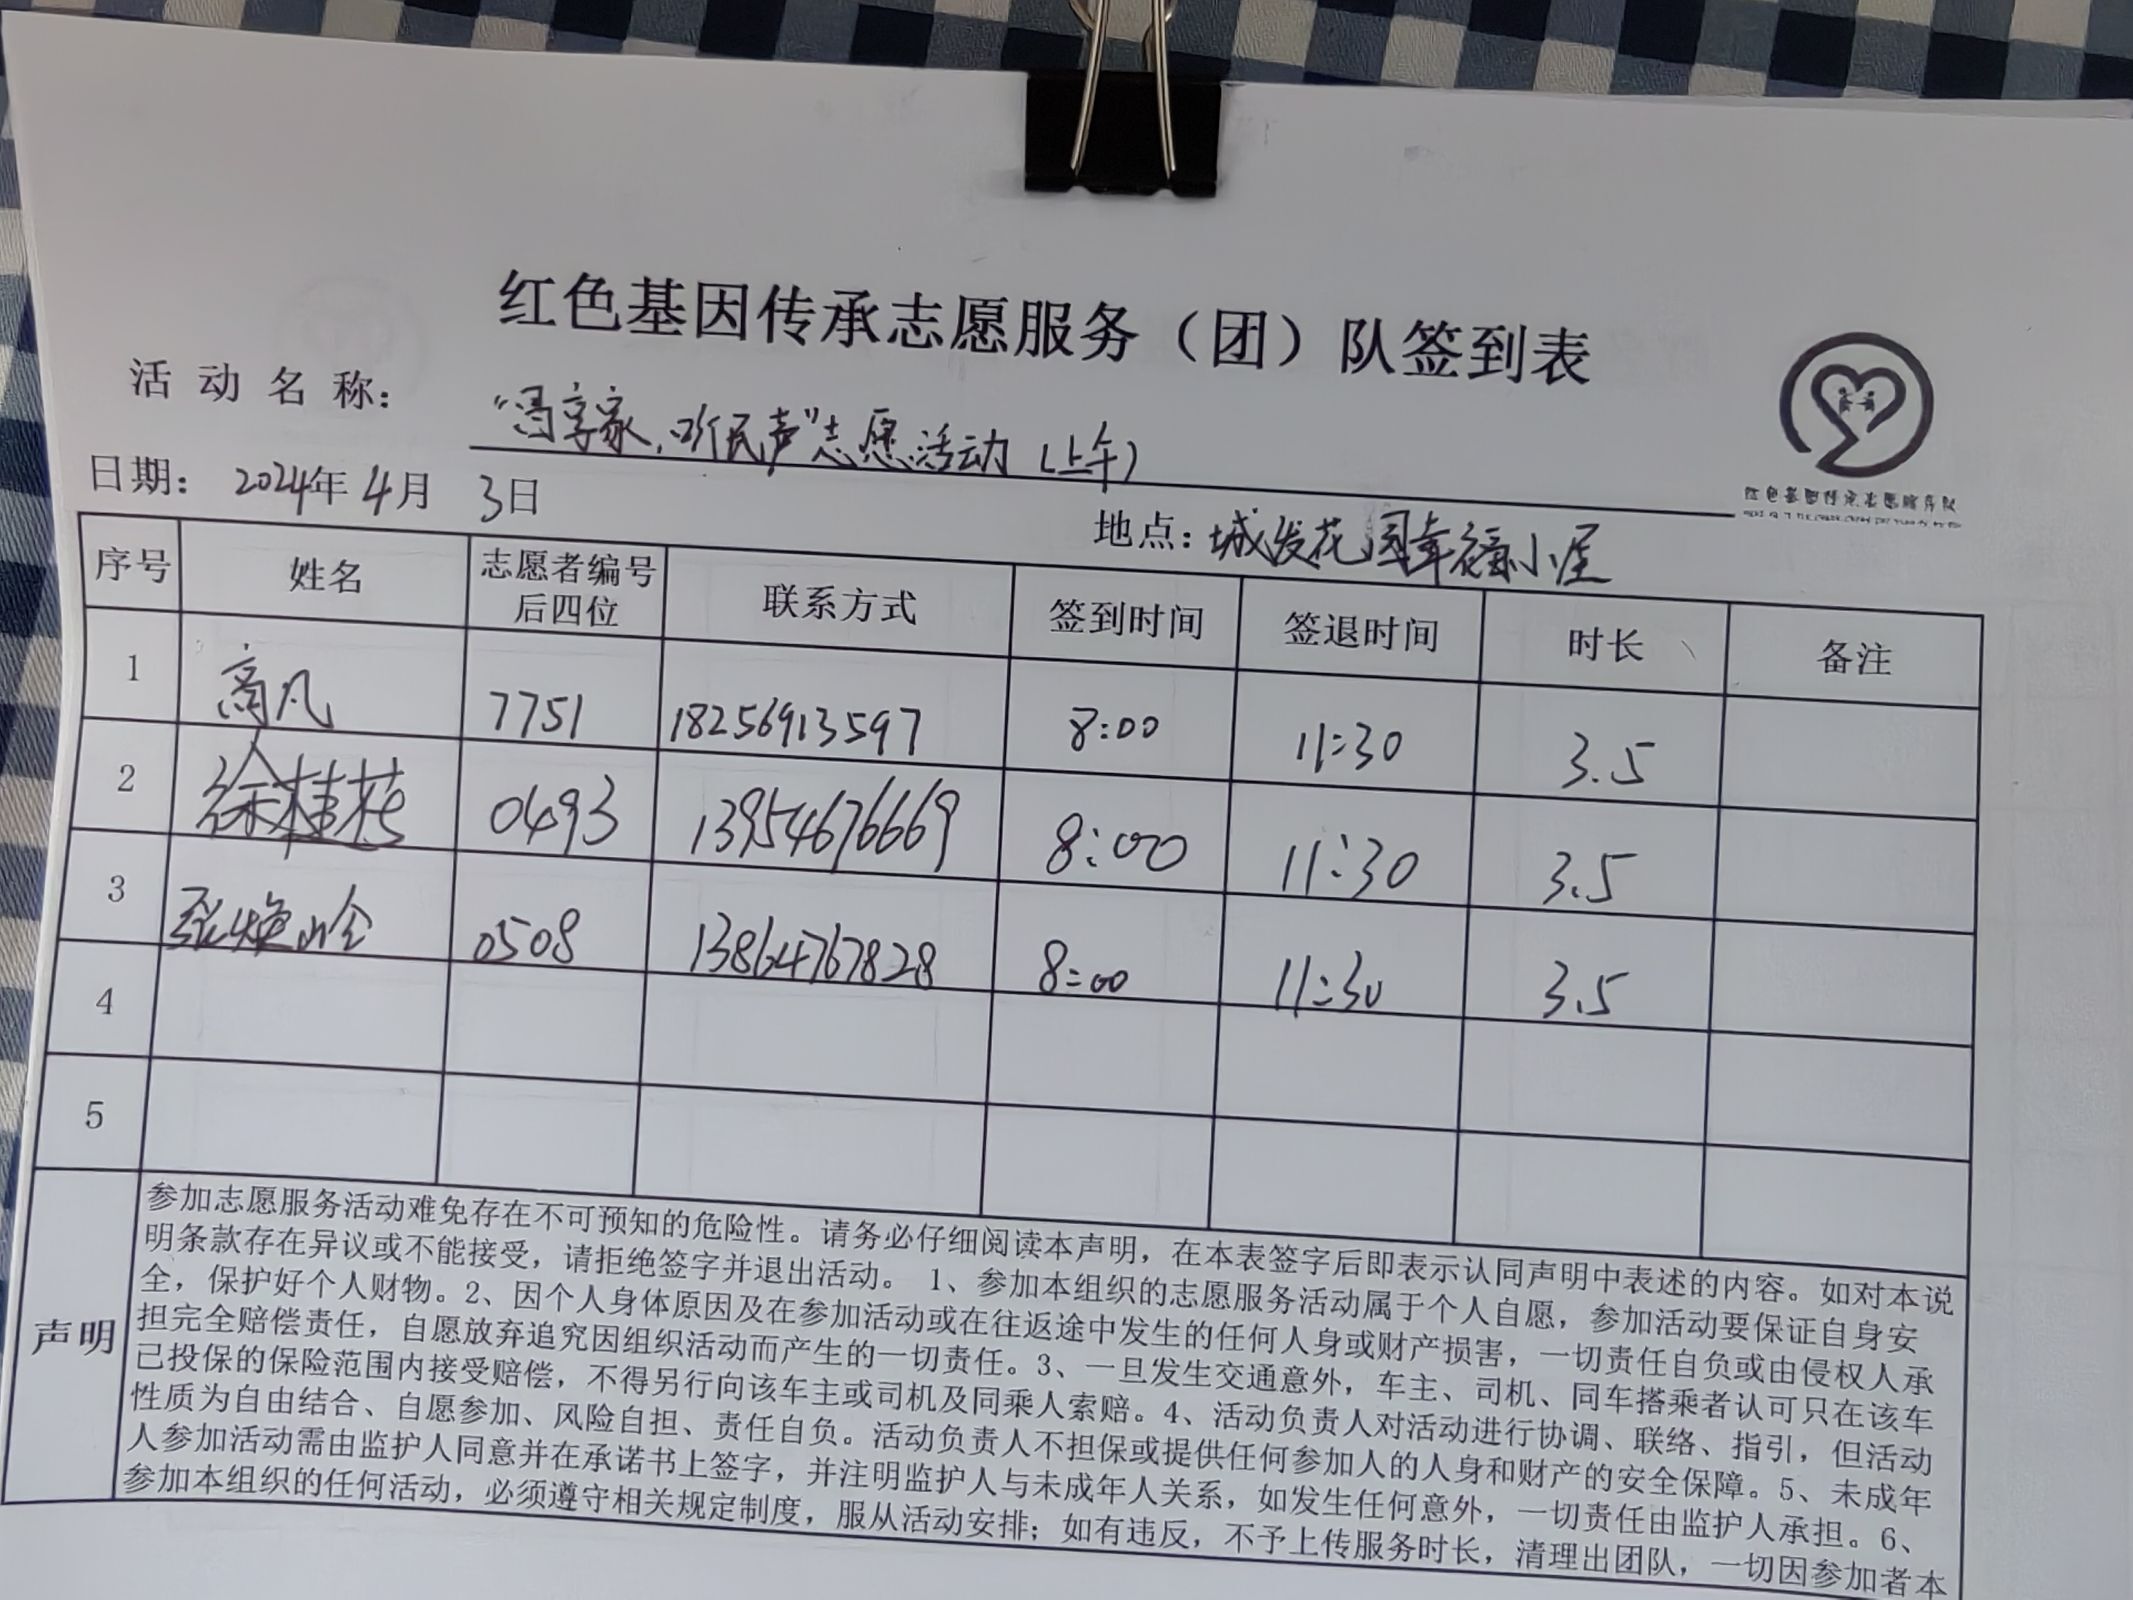 红色基因传承志愿服务（团）队签到表
活动名称：“冯享家，听民声”志愿活动（上午）
红色基因传承志愿服务队
日期：2024年4月3日 地点：城发花园幸福小屋
序号 姓名 志愿者编号后四位 联系方式 签到时间 签退时间 时长 备注
1 高凡 7751 18256913597 8:00 11:30 3.5
2 徐桂花 0493 13954676669 8:00 11:30 3.5
3 张焕岭 0508 13864767828 8:00 11:30 3.5
4
5
声明
参加志愿服务活动难免存在不可预知的危险性。请务必仔细阅读本声明，在本表签字后即表示认同声明中表述的内容。如对本说
明条款存在异议或不能接受，请拒绝签字并退出活动。 1、参加本组织的志愿服务活动属于个人自愿，参加活动要保证自身安
全，保护好个人财物。2、因个人身体原因及在参加活动或在往返途中发生的任何人身或财产损害，一切责任自负或由侵权人承
担完全赔偿责任，自愿放弃追究因组织活动而产生的一切责任。3、一旦发生交通意外，车主、司机、同车搭乘者认可只在该车
已投保的保险范围内接受赔偿，不得另行向该车主或司机及同乘人索赔。4、活动负责人对活动进行协调、联络、指引，但活动
性质为自由结合、自愿参加、风险自担、责任自负。活动负责人不担保或提供任何参加人的人身和财产的安全保障。5、未成年
人参加活动需由监护人同意并在承诺书上签字，并注明监护人与未成年人关系，如发生任何意外，一切责任由监护人承担。6、
参加本组织的任何活动，必须遵守相关规定制度，服从活动安排；如有违反，不予上传服务时长，清理出团队，一切因参加者本